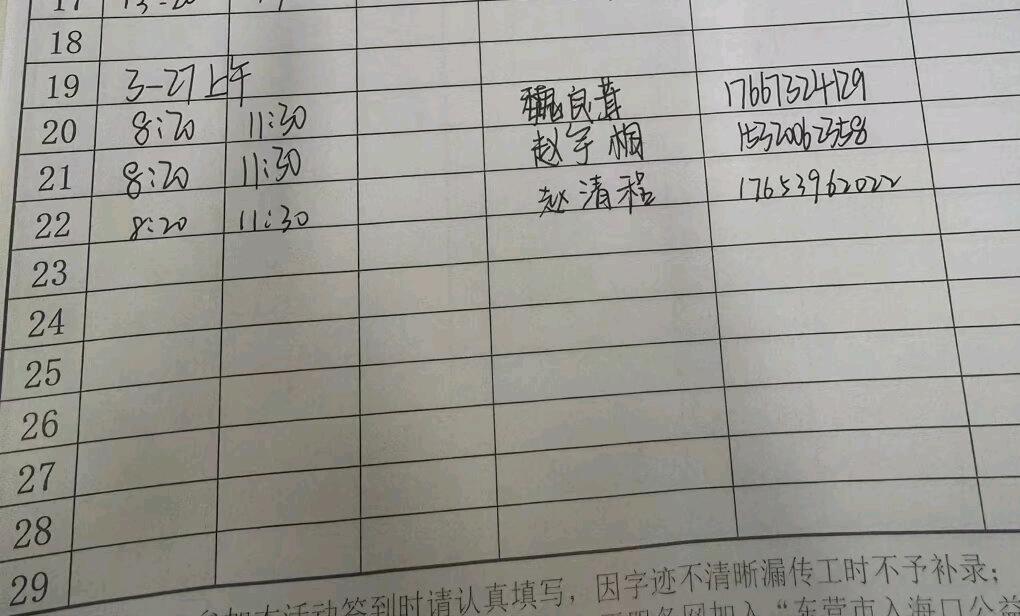 17 13-20
18
19 3-27上午
20 8:20 11:30 魏良茸 17667324129
21 8:20 11:30 赵宇桐 15320062358
22 8:20 11:30 赵清程 17653962022
23
24
25
26
27
28
29
参加本活动签到时请认真填写，因字迹不清晰漏传工时不予补录；
加入“东营市入海口公益